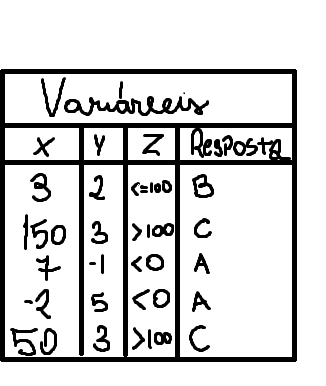 Variáveis
X Y Z Resposta
3 2 <=100 B
150 3 >100 C
7 -1 <0 A
-2 5 <0 A
50 3 >100 C